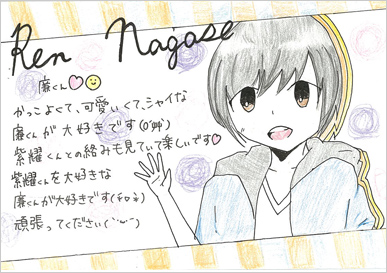 Ren Nagase
廉くん
かっこよくて、可愛いくて、シャイな
廉くんが大好きです
紫耀くんとの絡みも見ていて楽しいです
紫耀くんを大好きな
廉くんが大好きです
頑張ってください